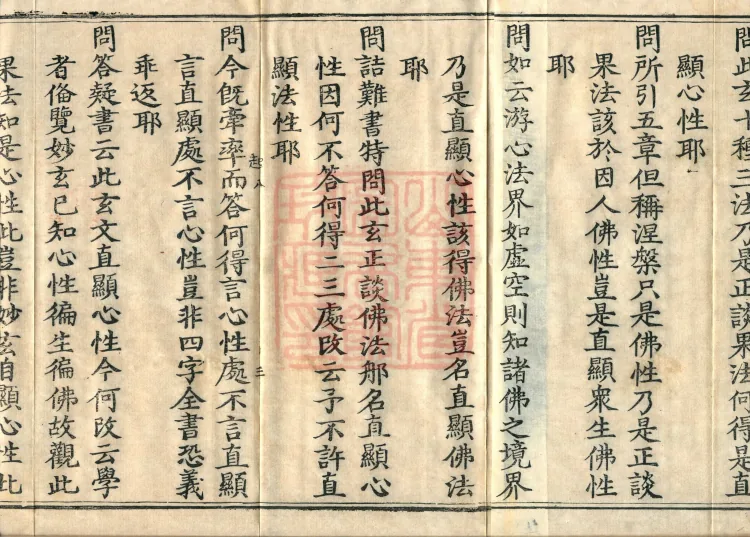 問此玄十種三法乃是正談果法何得是直
顯心性耶
問所引五章但稱涅槃只是佛性乃是正談
果法該於因人佛性豈是直顯衆生佛性
耶
問如云游心法界如虛空則知諸佛之境界
乃是直顯心性該得佛法豈名直顯佛法
耶
問詰難書特問此玄正談佛法那名直顯心
性因何不答何得二三處改云予不許直
顯法性耶
三
問今旣牽率而答何得言心性處不言直顯
言直顯處不言心性豈非四字全書恐義
乖返耶
問答疑書云此玄文直顯心性今何改云學
者俻覽妙玄已知心性徧生徧佛故觀此
果法知是心性此豈非妙玄自顯心性此